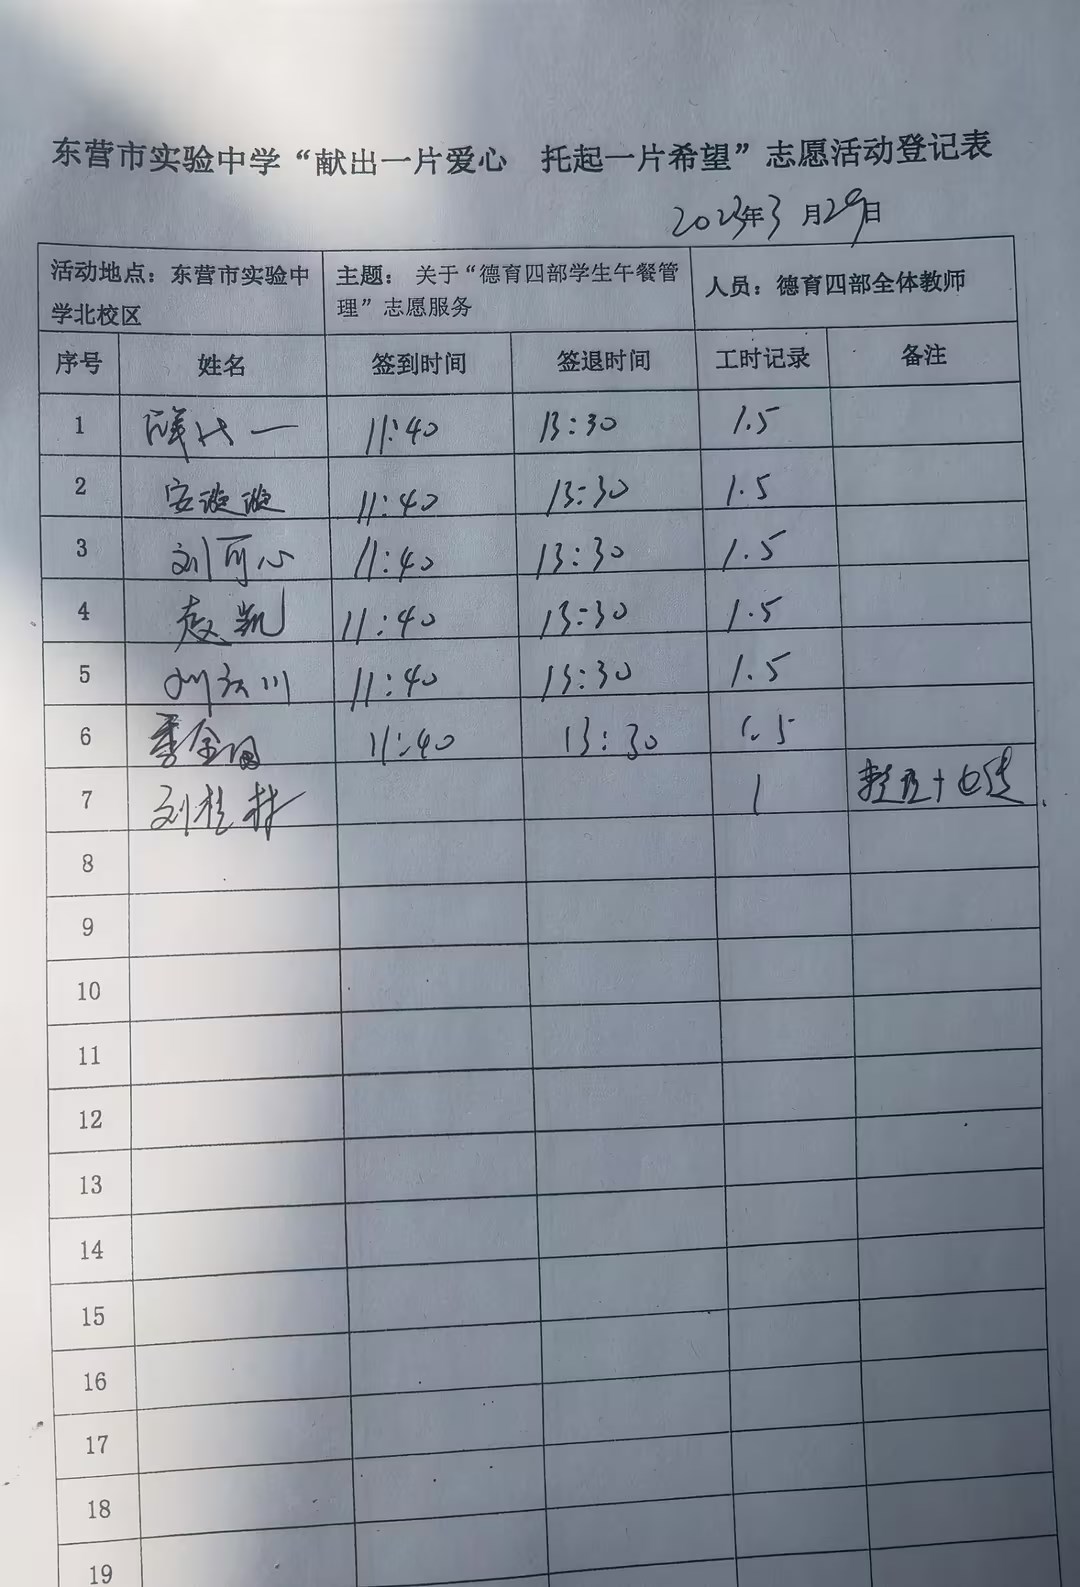 东营市实验中学“献出一片爱心 托起一片希望”志愿活动登记表
2023年3月29日
活动地点：东营市实验中
学北校区
主题：关于“德育四部学生午餐管
理”志愿服务
人员：德育四部全体教师
序号 姓名 签到时间 签退时间 工时记录 备注
1 一 11:40 13:30 1.5
2 安漩漩 11:40 13:30 1.5
3 刘可心 11:40 13:30 1.5
4 赵凯 11:40 13:30 1.5
5 川 11:40 13:30 1.5
6 11:40 13:30 1.5
7 刘桂林 1
8
9
10
11
12
13
14
15
16
17
18
19